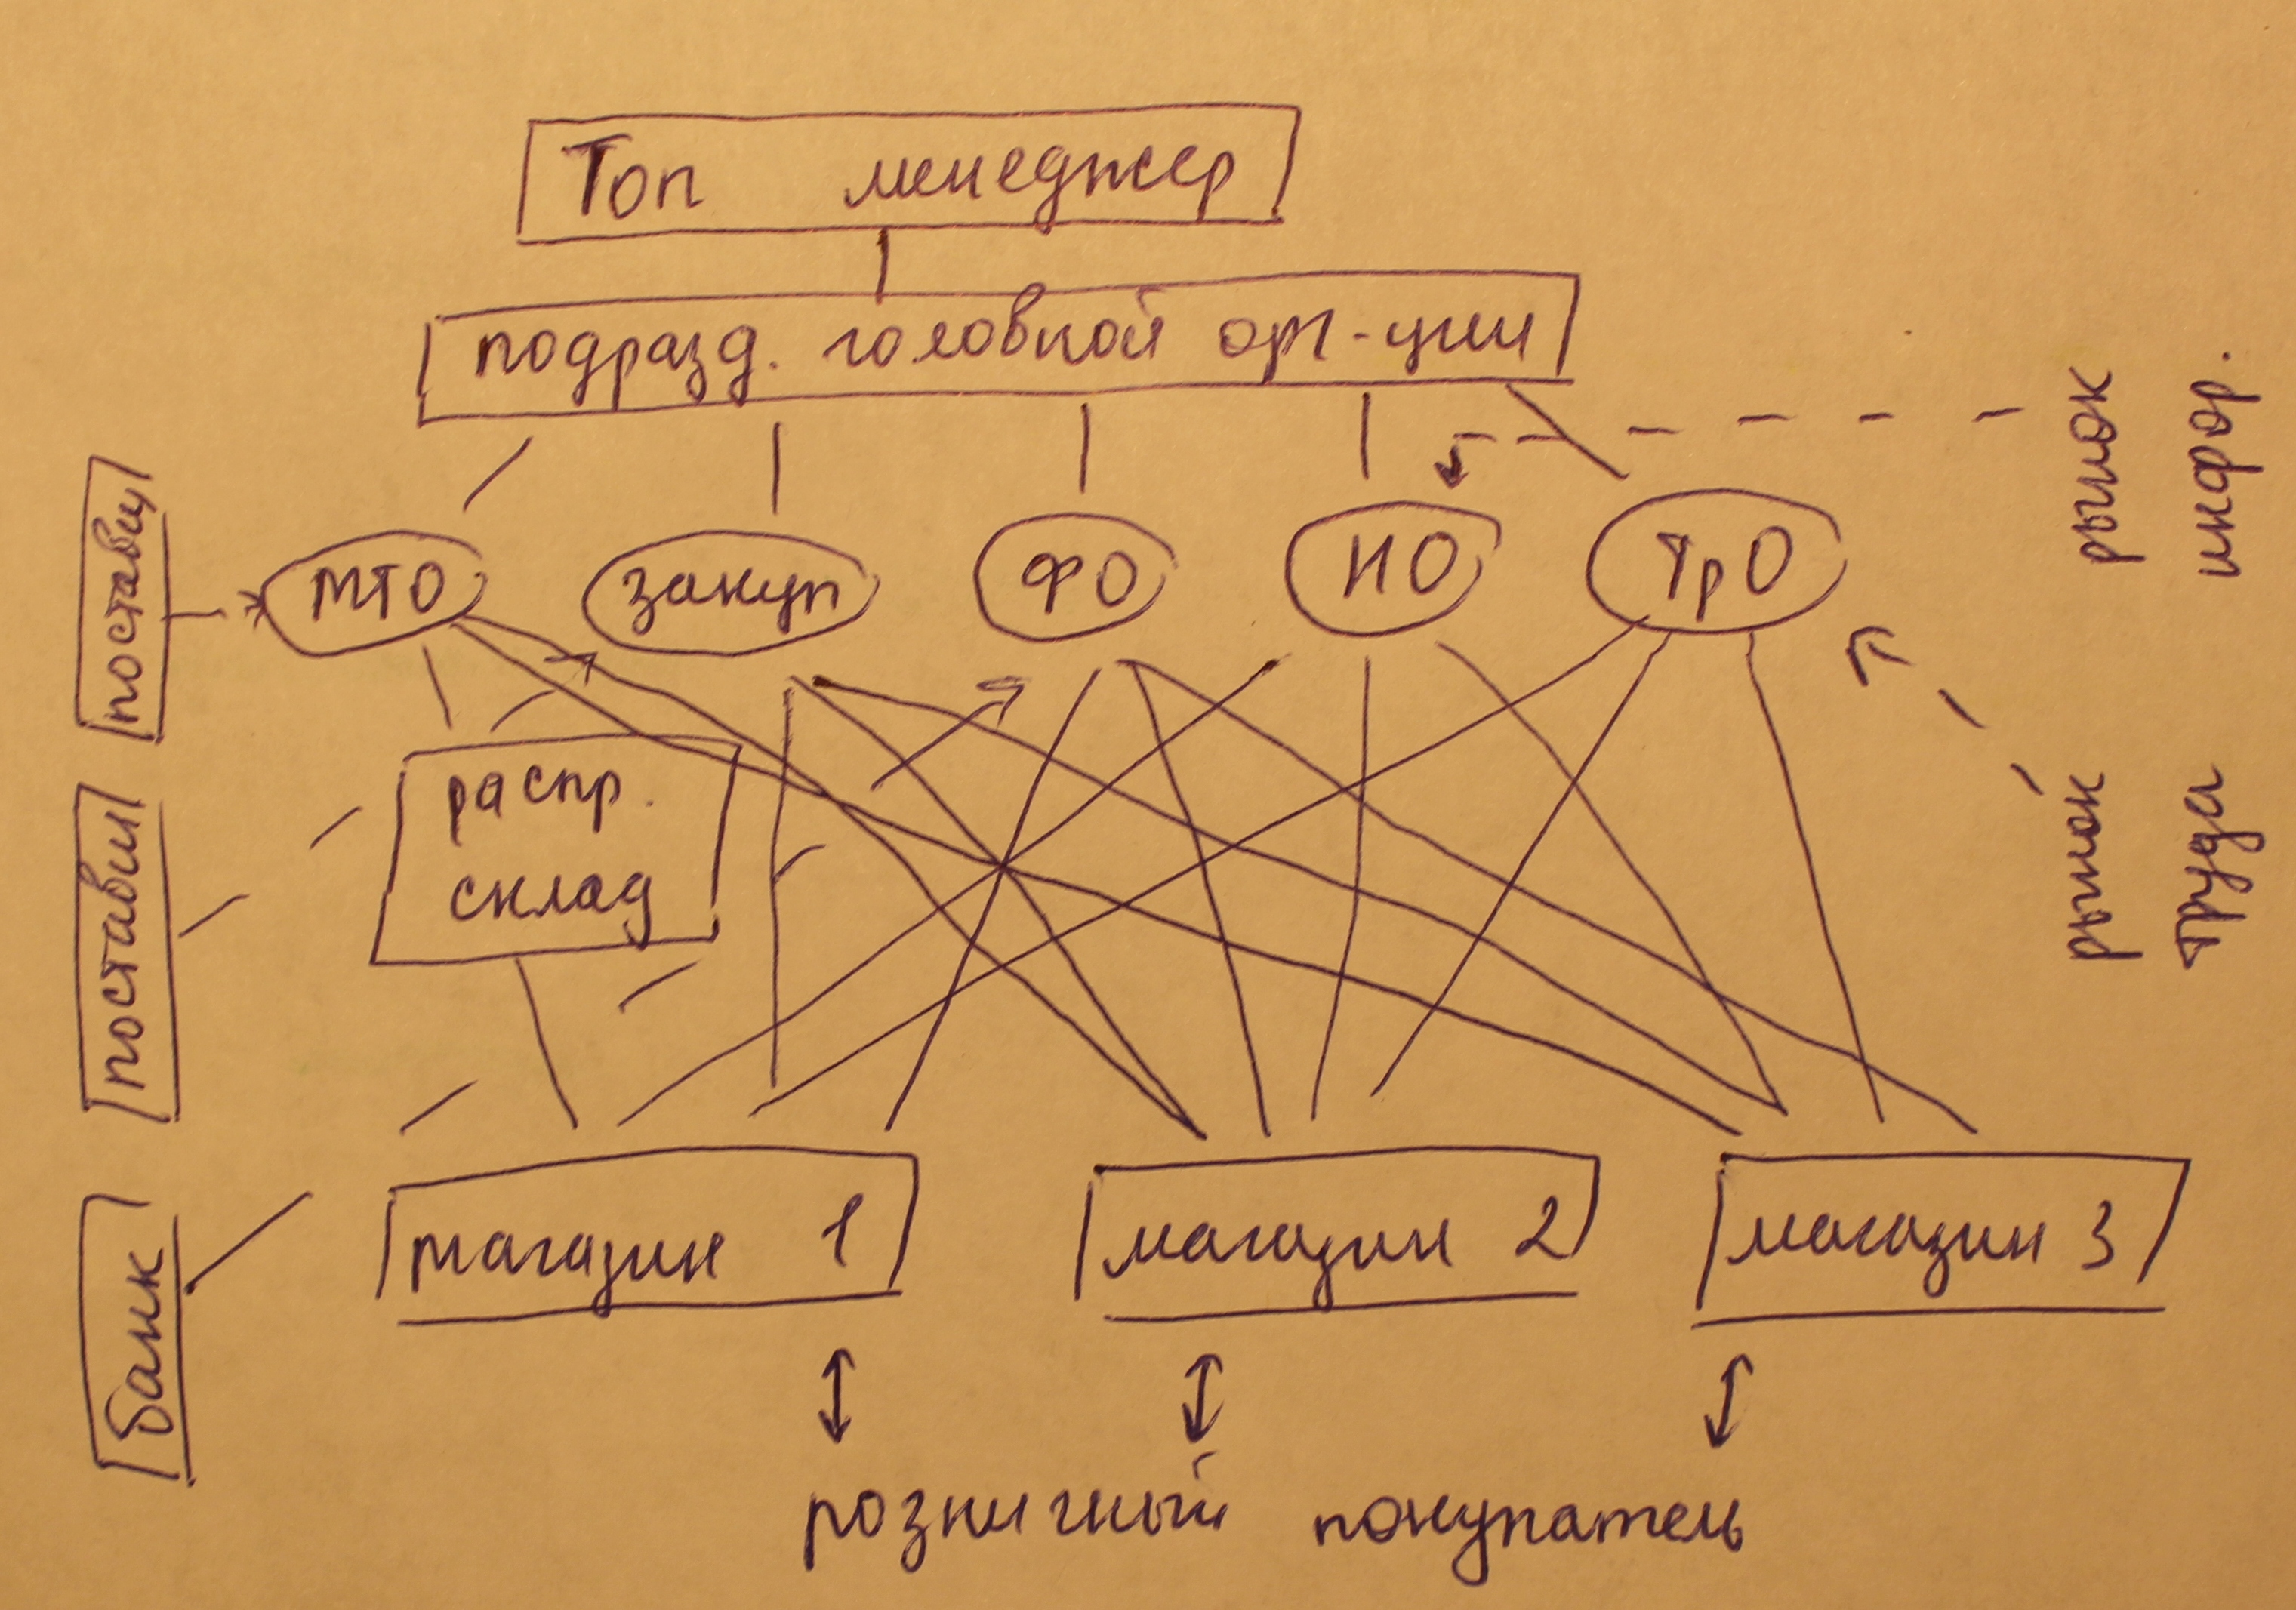 Топ менеджер
подразд. головной орг-ции
МТО
закуп
ФО
ИО
ТрО
распр.
склад
магазин 1
магазин 2
магазин 3
розничный покупатель
поставщ
поставщ
банк
рынок
инфор.
рынок
труда